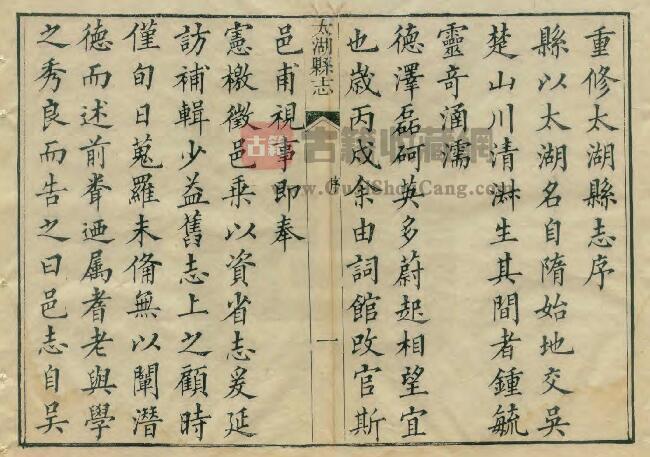 重修太湖縣志序
縣以太湖名自隋始地交吳
楚山川清淋生其間者鍾毓
靈奇涵濡
德澤磊砢英多蔚起相望宜
也歲丙戌余由詞館改官斯
太湖縣志
序
一
邑甫視事即奉
憲檄徵邑乘以資省志爰延
訪補輯少益舊志上之顧時
僅旬日蒐羅未俻無以闡潛
德而述前軰迺属耆老與學
之秀良而告之曰邑志自吳
古籍
古籍收藏網
www.GuJiShouCang.com